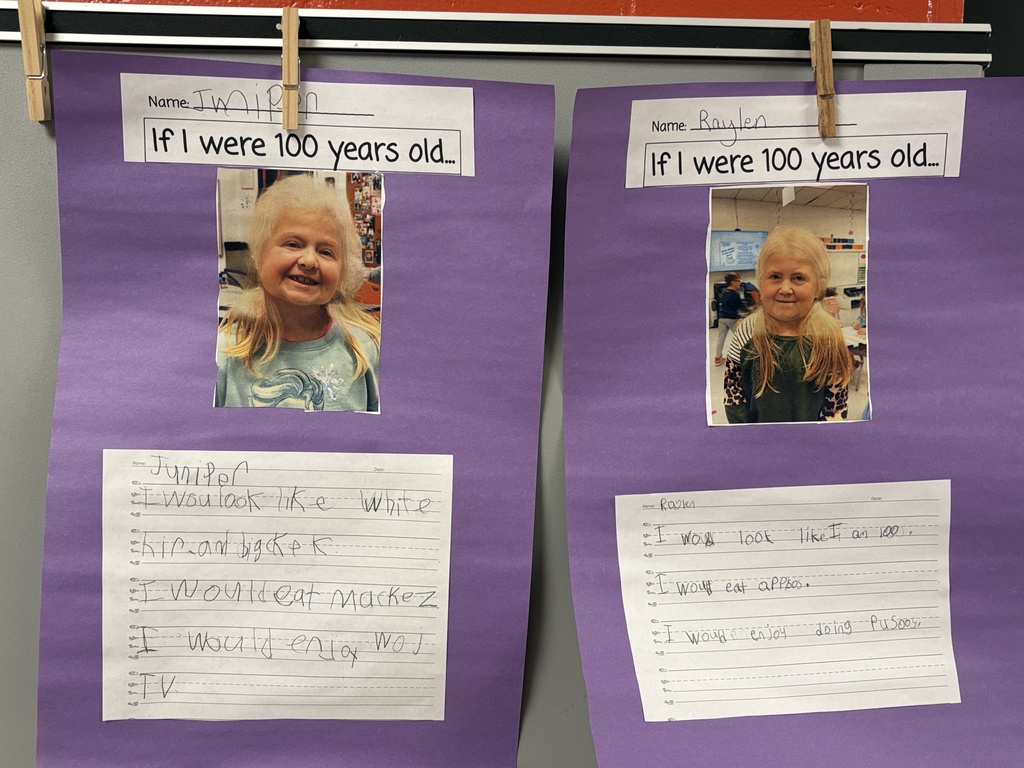 Name: Juniper
If I were 100 years old...
Name Juniper Date:
I wou look like White
hir and big
I Would eat mackez
I would enjoy woj
TV
Name: Raylen
If I were 100 years old...
Name Raylen Date:
I woud look like I am 100.
I woud eat appos.
I woud enjoy doing Pusoos.